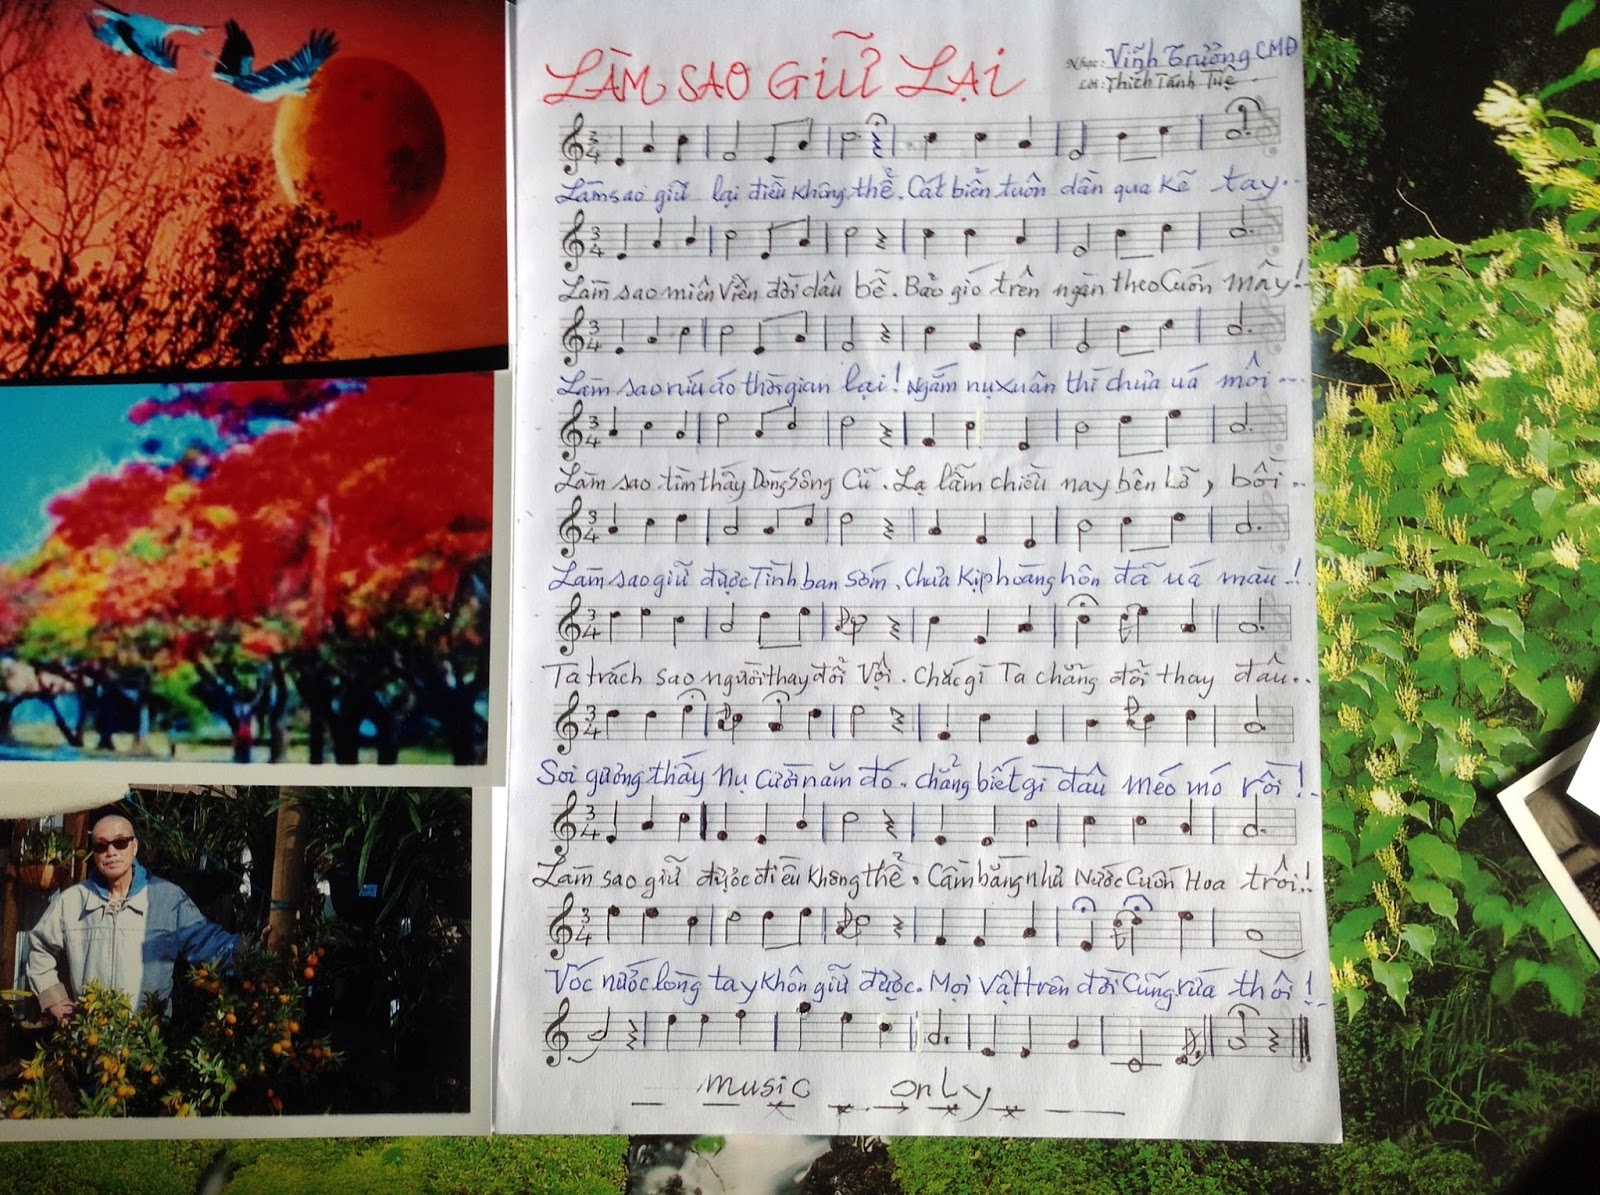 LÀM SAO GIỮ LẠI
Nhạc: Vĩnh Trưởng CMĐ
Lời: Thích Tánh Tuệ
3/4
Làm sao giữ lại điều không thể. Cát biển tuôn dần qua kẽ tay..
3/4
Làm sao miên viễn đời dâu bể. Bảo gió trên ngàn theo cuốn mây!..
3/4
Làm sao níu áo thời gian lại! Ngắm nụ xuân thì chưa uá môi...
3/4
Làm sao tìm thấy Dòng Sông Cũ. Lạ lẫm chiều nay bên lở, bồi..
3/4
Làm sao giữ được Tình ban sớm. Chưa kịp hoàng hôn đã uá màu.!.
3/4
Ta trách sao người thay đổi vội. Chắc gì Ta chẳng đổi thay đâu..
3/4
Soi gương thấy nụ cười năm đó. chẳng biết gì đâu méo mó rồi!
3/4
Làm sao giữ được điều không thể. Cầm bằng như Nước Cuốn Hoa trôi!..
3/4
Vốc nước lòng tay không giữ được. Mọi vật trên đời cũng rứa thôi!..
music only